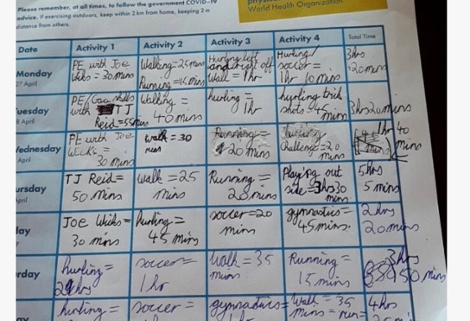 Please remember, at all times, to follow the government COVID-19
advice. If exercising outdoors, keep within 2 km from home, keeping 2 m
distance from others.
World Health Organization
Date Activity 1 Activity 2 Activity 3 Activity 4 Total Time
Monday
27 April
PE with Joe
Wicks = 30mins
Walking = 25mins
Running = 15mins
Hurling left
and right off
Wall = 1hr
Hurling/
soccer =
1hr 10 mins
3hrs
20mins
PE/
with TJ
Reid = 55mins
Walking =
40 mins
hurling =
1hr
hurling trick
shots = 45 mins
3hrs 20mins
Wednesday
April
PE with Joe
Wicks =
30 mins
walk = 30
mins
Running =
20 mins
= 20 mins
1hr 40
mins
April
TJ Reid =
50 mins
walk = 25
mins
Running =
mins
Playing out
side = 3hrs30
mins
5hrs
5 mins
Joe Wicks =
30 mins
hurling =
45 mins
soccer = 20
mins
gymnastics =
45 mins
2hrs
20mins
hurling =
soccer =
1hr
Walk = 35
mins
Running =
15 mins
3hrs
50 mins
hurling =
soccer =
gymnastics =
Walk = 35
mins
4hrs